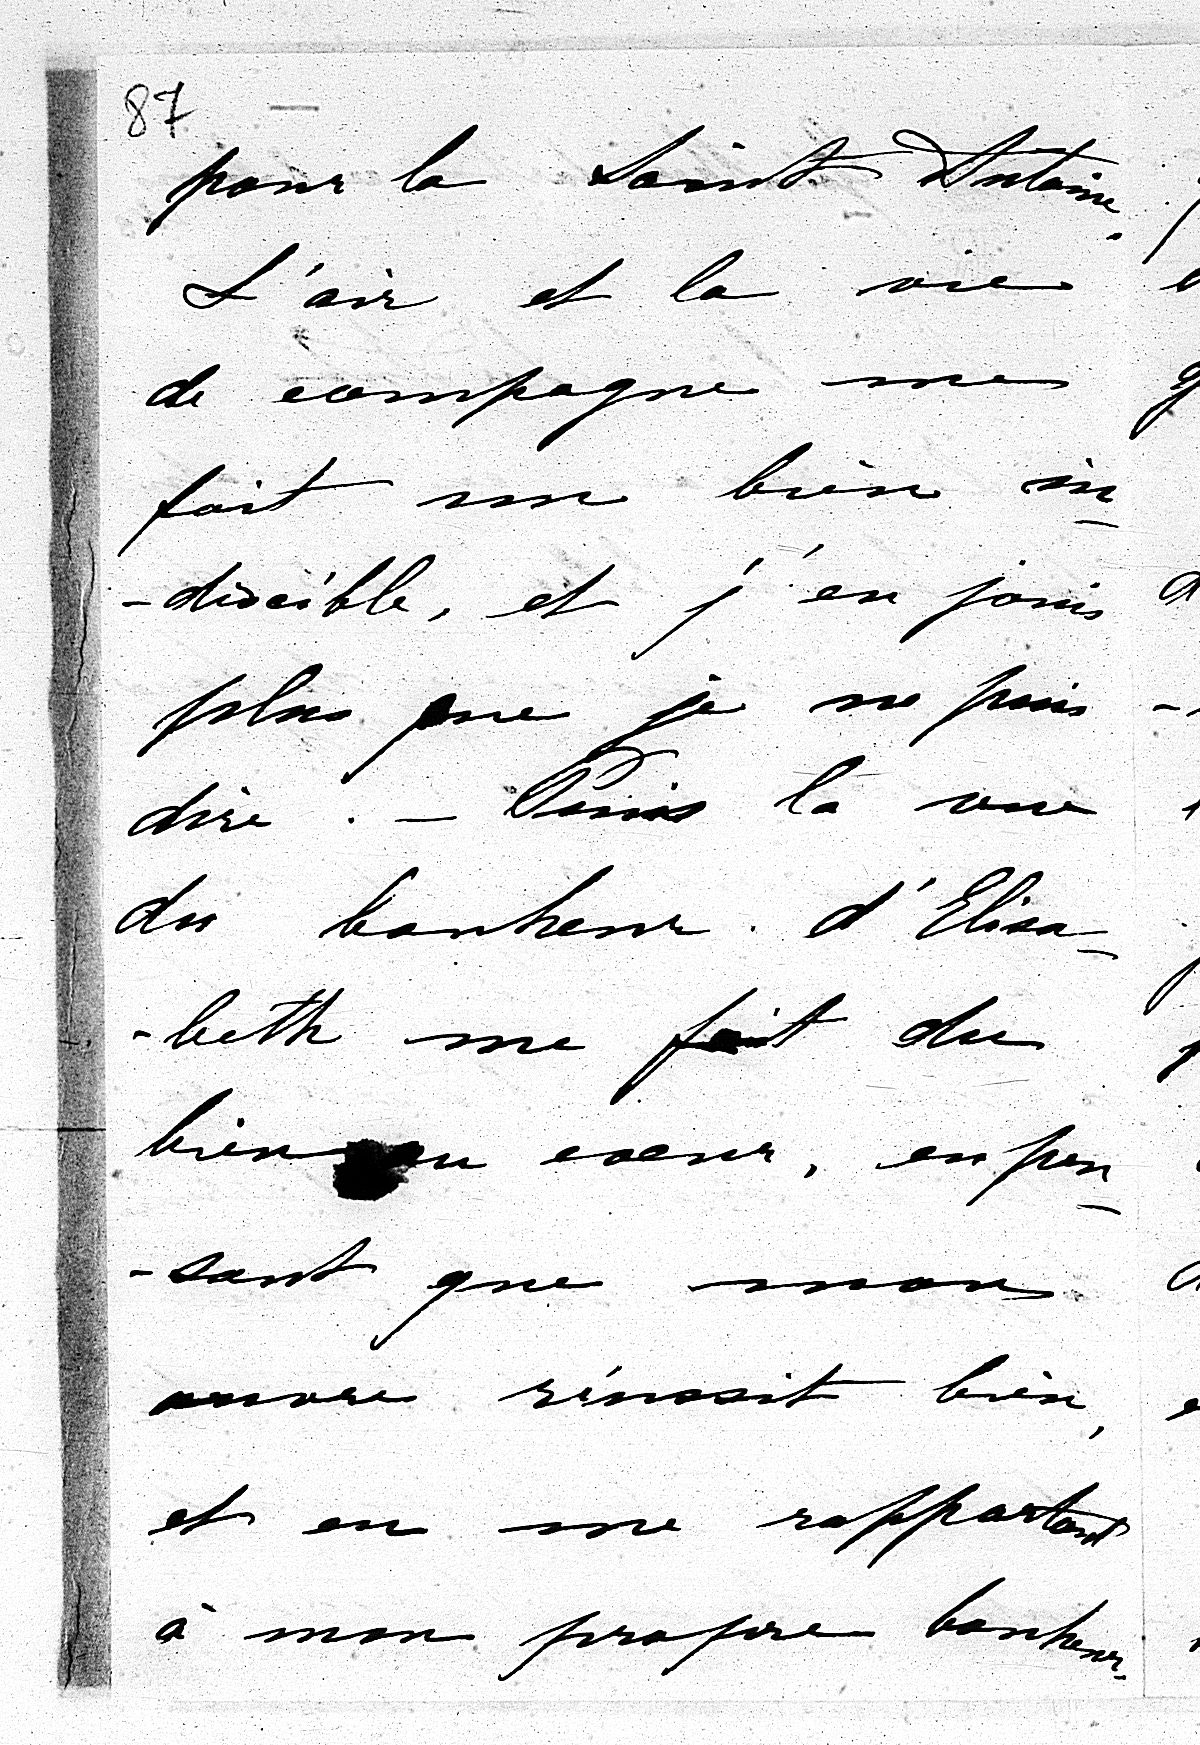 87
pour la Saint Antoine.
L'air et la vie
de campagne me
fait un bien in-
-discible, et j'en jouis
plus que je ne puis
dire. — Puis la vue
du bonheur d'Elisa-
-beth me fait du
bien au coeur, en pen-
-sant que mon
œuvre réussit bien,
et en me rapportant
à mon propre bonheur.